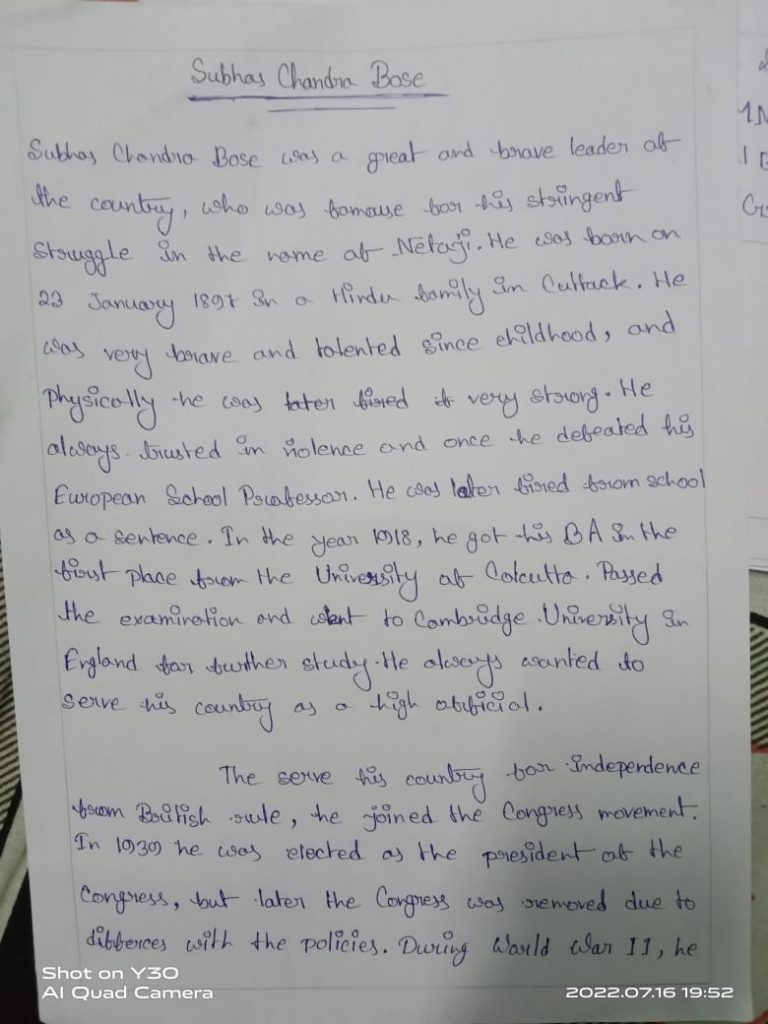 Subhas Chandra Bose
Subhas Chandra Bose was a great and brave leader of
the country, who was famouse for his stringent
struggle in the name of Netaji. He was born on
23 January 1897 in a Hindu family in Cuttack. He
was very brave and talented since childhood, and
Physically he was very strong. He
always trusted in violence and once he defeated his
European School Professor. He was later fired from school
as a sentence. In the year 1918, he got his BA in the
first place from the University of Calcutta. Passed
the examination and went to Cambridge University in
England for further study. He always wanted to
serve his country as a high official.
The serve his country for independence
from British rule, he joined the Congress movement.
In 1939 he was elected as the president of the
Congress, but later the Congress was removed due to
differces with the policies. During World War II, he
Shot on Y30
AI Quad Camera
2022.07.16 19:52